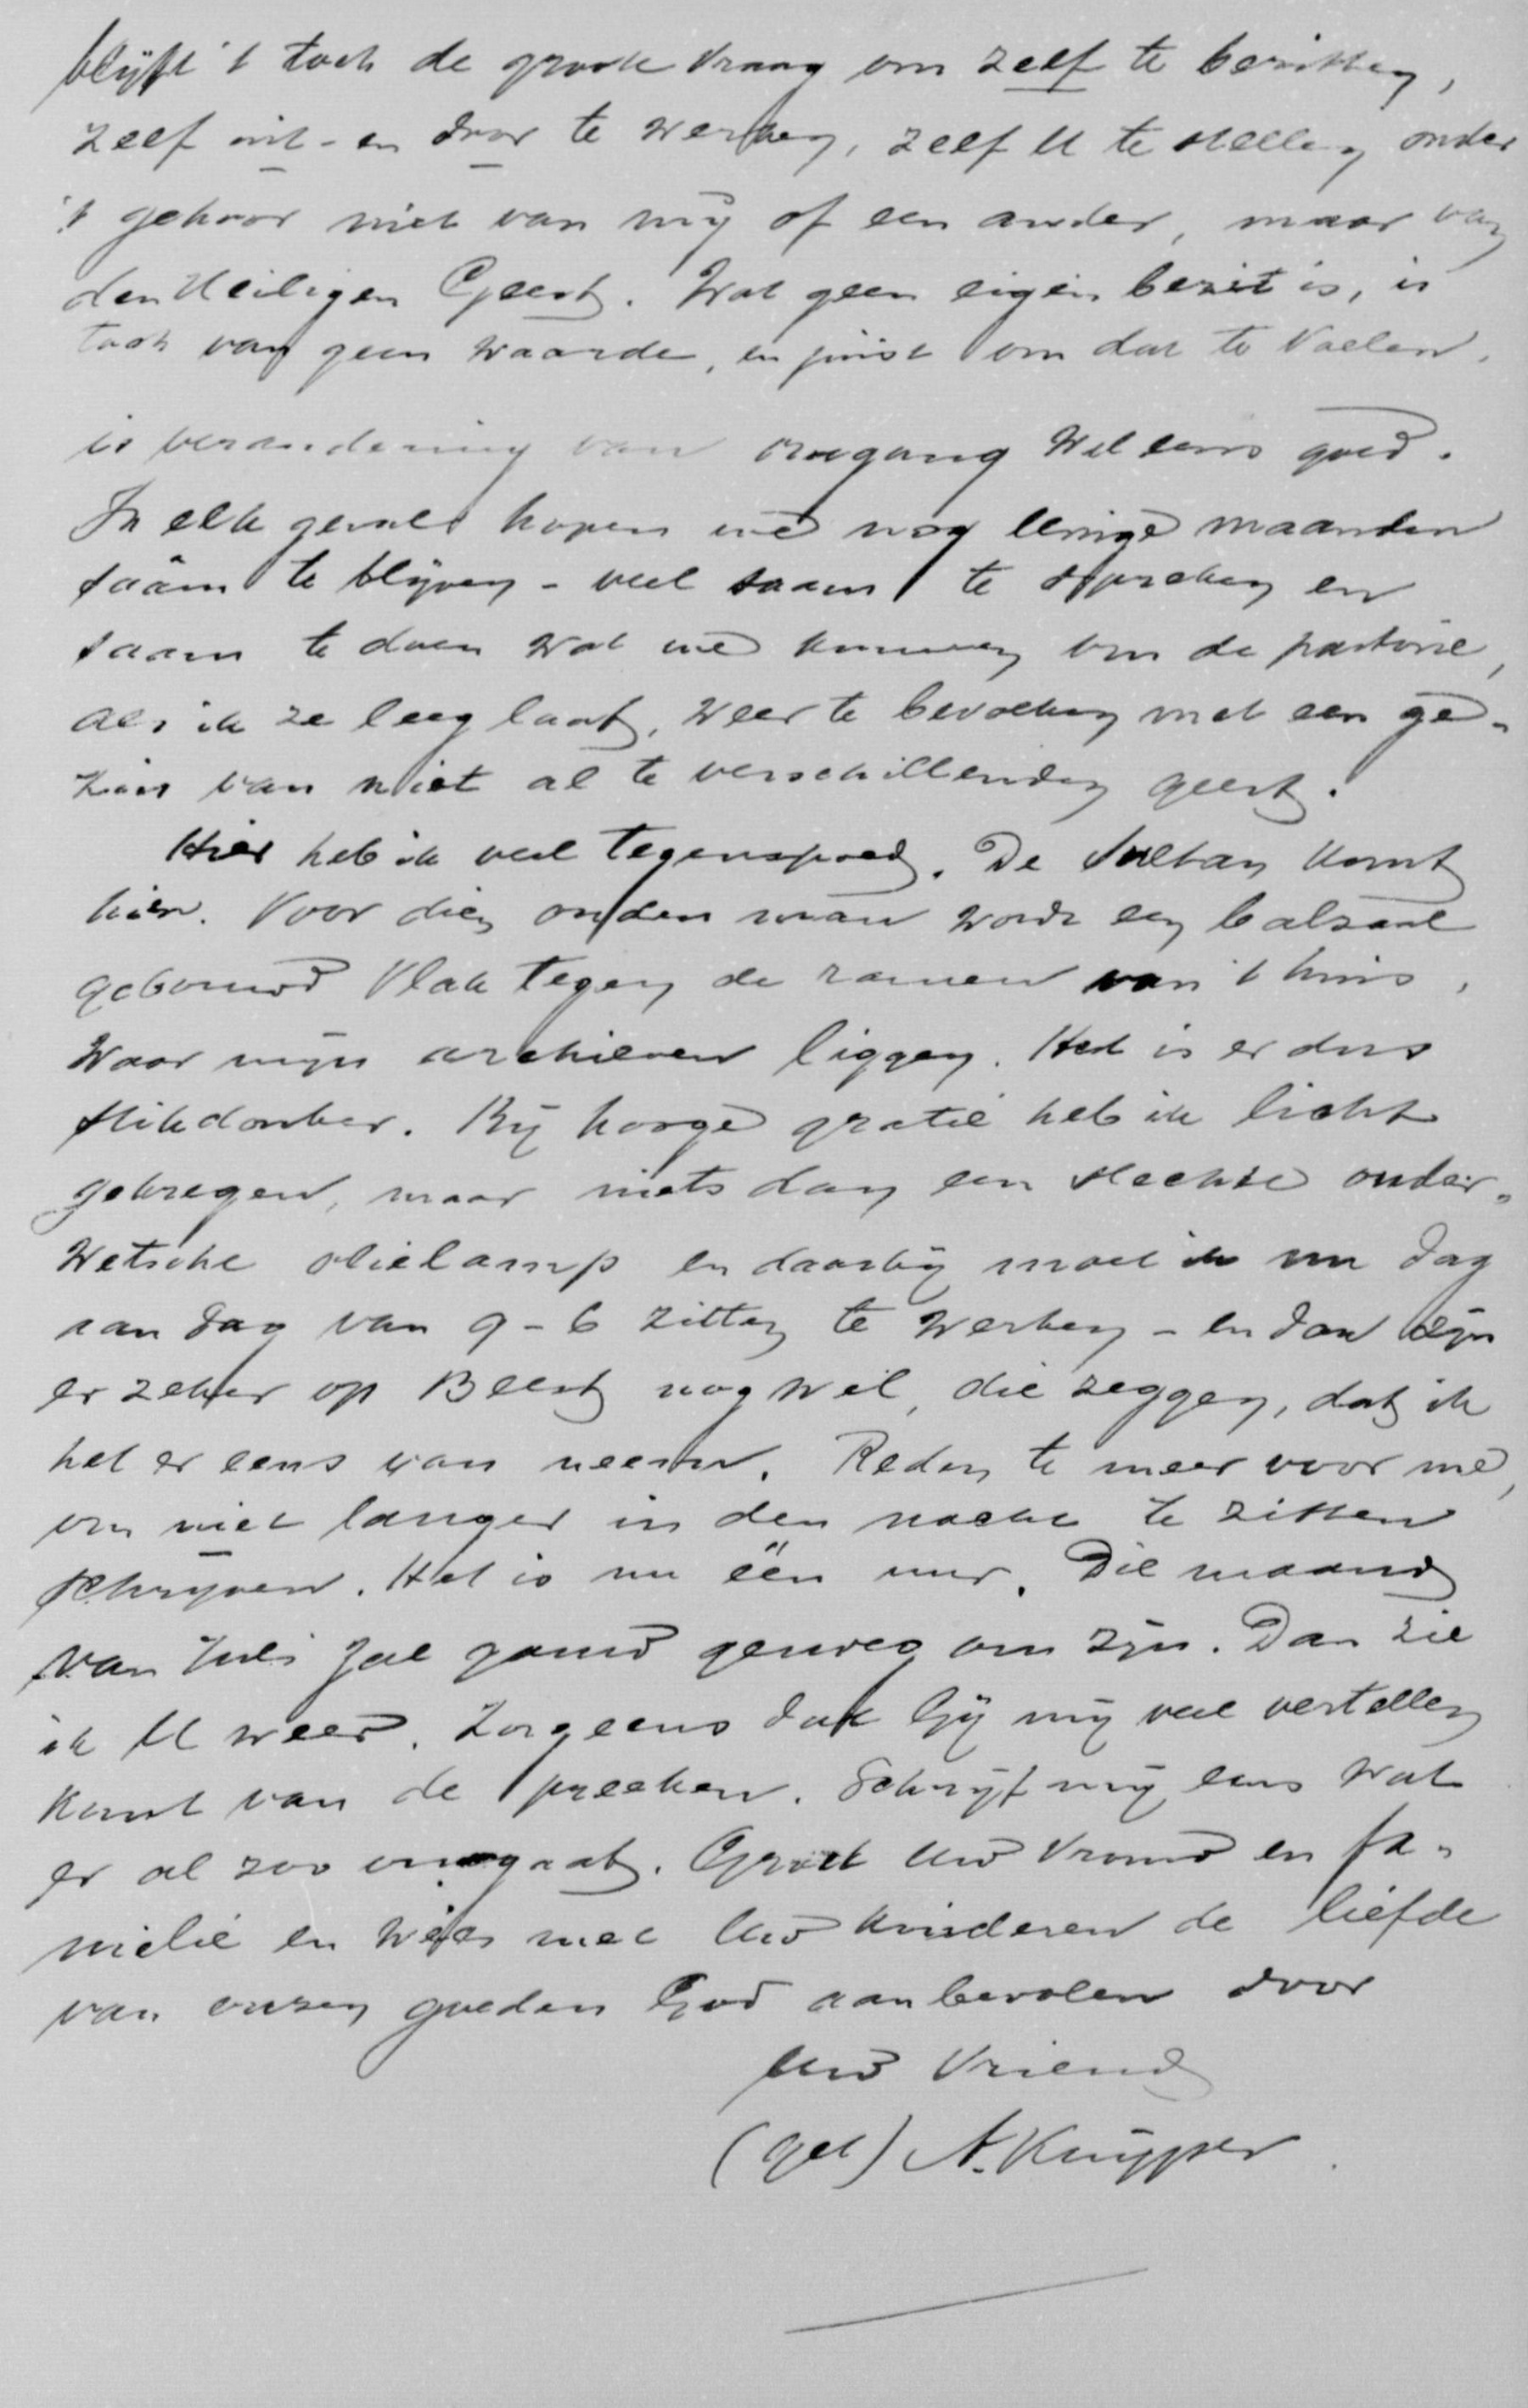 blijft 't toch de groote vraag om zelf te bezitten,
zelf uit- en door te werken, zelf U te stellen onder
't gehoor niet van mij of een ander, maar van
den Heiligen Geest. Wat geen eigen bezit is, is
toch van geen waarde, en juist om dat te voelen,
is verandering van omgang wel eens goed.
In elk geval hopen we nog eenige maanden
saâm te blijven - veel saam te spreken en
saam te doen wat we kunnen om de pastorie,
als ik ze leeg laat, weer te bevolken met een ge-
zin van niet al te verschillenden geest.
Hier heb ik veel tegenspoed. De Sultan komt
hier. Voor dien ouden man wordt een balzaal
gebouwd vlak tegen de ramen van 't huis,
waar mijn archieven liggen. Het is er dus
stikdonker. Bij hooge gratie heb ik licht
gekregen, maar niets dan een slechte ouder-
wetsche olielamp en daarbij moet ik nu dag
aan dag van 9-6 zitten te werken - en dan zijn
er zeker op Beest nog wel, die zeggen, dat ik
het er eens van neem. Reden te meer voor me,
om niet langer in den nacht te zitten
schrijven. Het is nu één uur. Die maand
van Juli zal gauw genoeg om zijn. Dan zie
ik U weer. Zorg eens dat Gij mij veel vertellen
kunt van de preeken. Schrijf mij eens wat
er al zoo omgaat. Groet Uw vrouw en fa-
milie en wees met Uw kinderen de liefde
van onzen goeden God aanbevolen door
Uw Vriend
(get) A. Kuyper